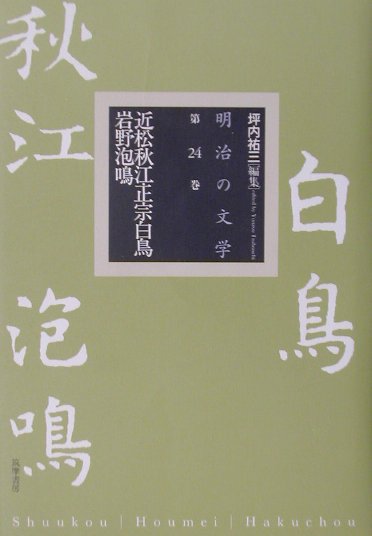 白鳥
秋江
泡鳴
坪内祐三[編集] edited by Yuuzou Tsubouchi
明治の文学
第24巻
近松秋江正宗白鳥
岩野泡鳴
筑摩書房
Shuukou | Houmei | Hakuchou